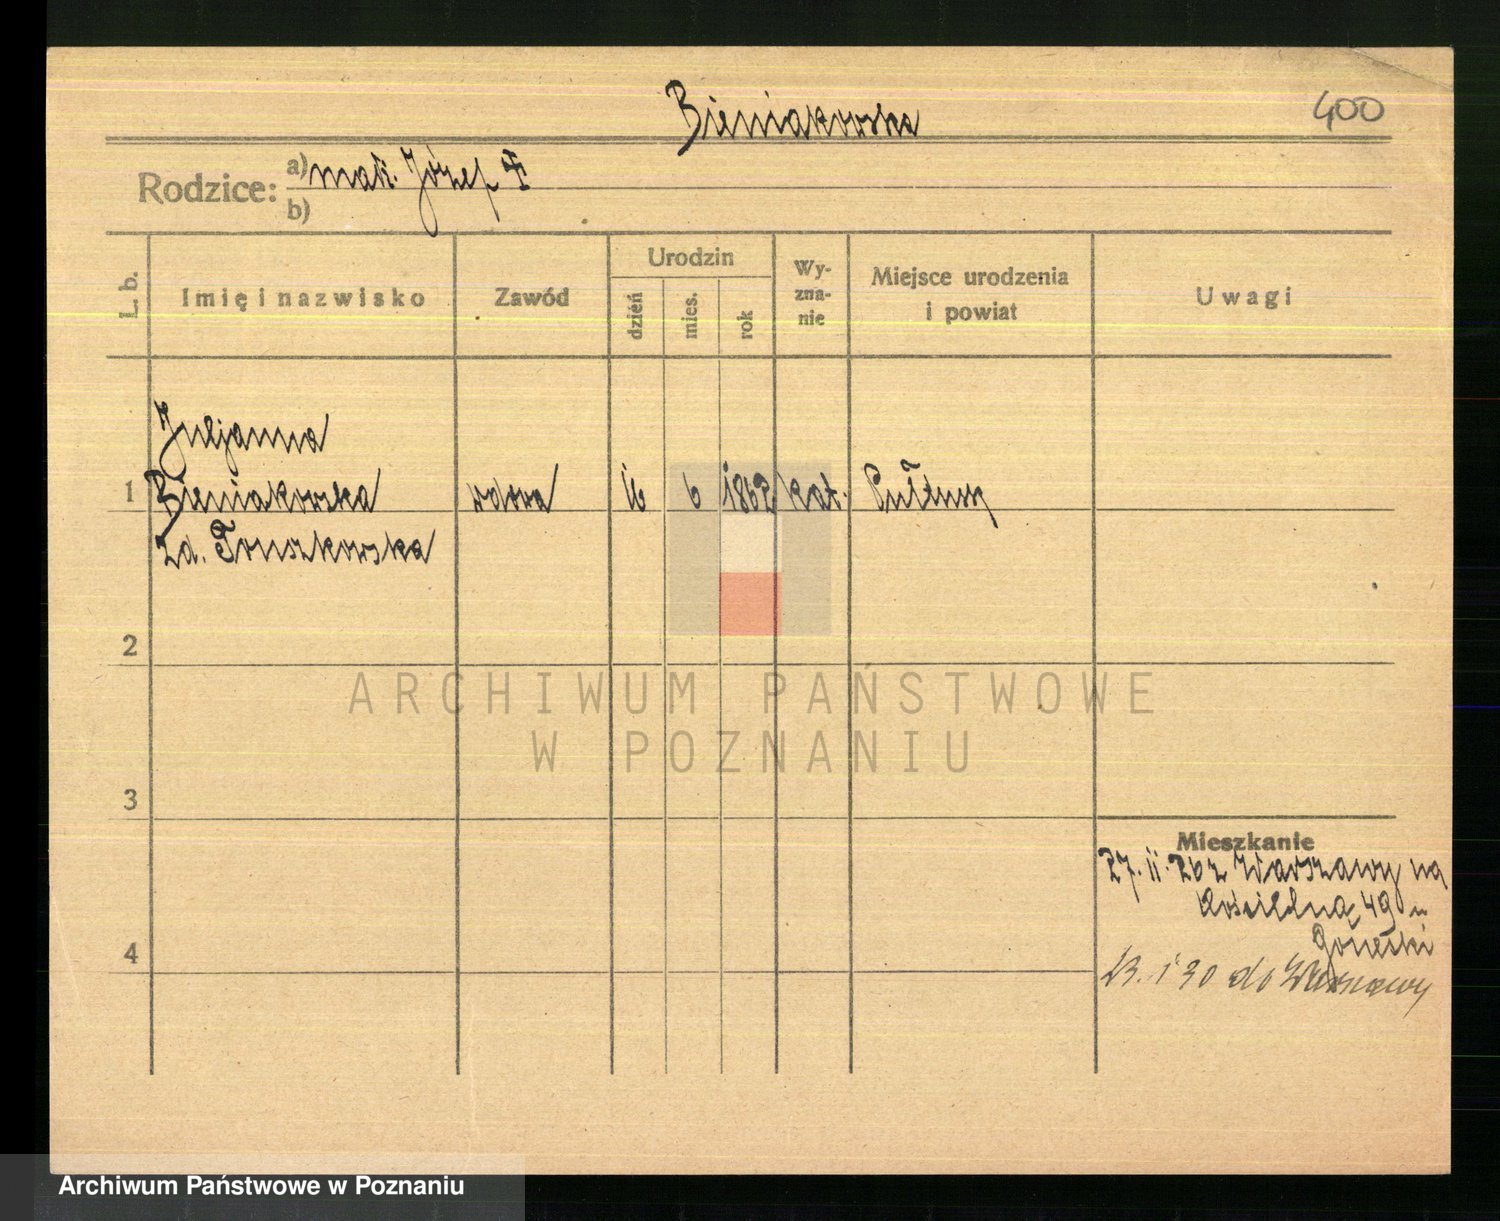 Bieniakowska
400
Rodzice: a) małż. Józef
b)
L. b.
Imię i nazwisko
Zawód
Urodzin
dzień
mies.
rok
Wy-
zna-
nie
Miejsce urodzenia
i powiat
Uwagi
Juljanna
1 Bieniakowska wdowa 16 6 1862 kat. Pułtusk
zd. Touszkowska
2
ARCHIWUM PAŃSTWOWE
W POZNANIU
3
Mieszkanie
27. 11. 26 z Warszawy na
Kościelną 49 u
Góreski
4
13. 1 30 do Warszawy
Archiwum Państwowe w Poznaniu